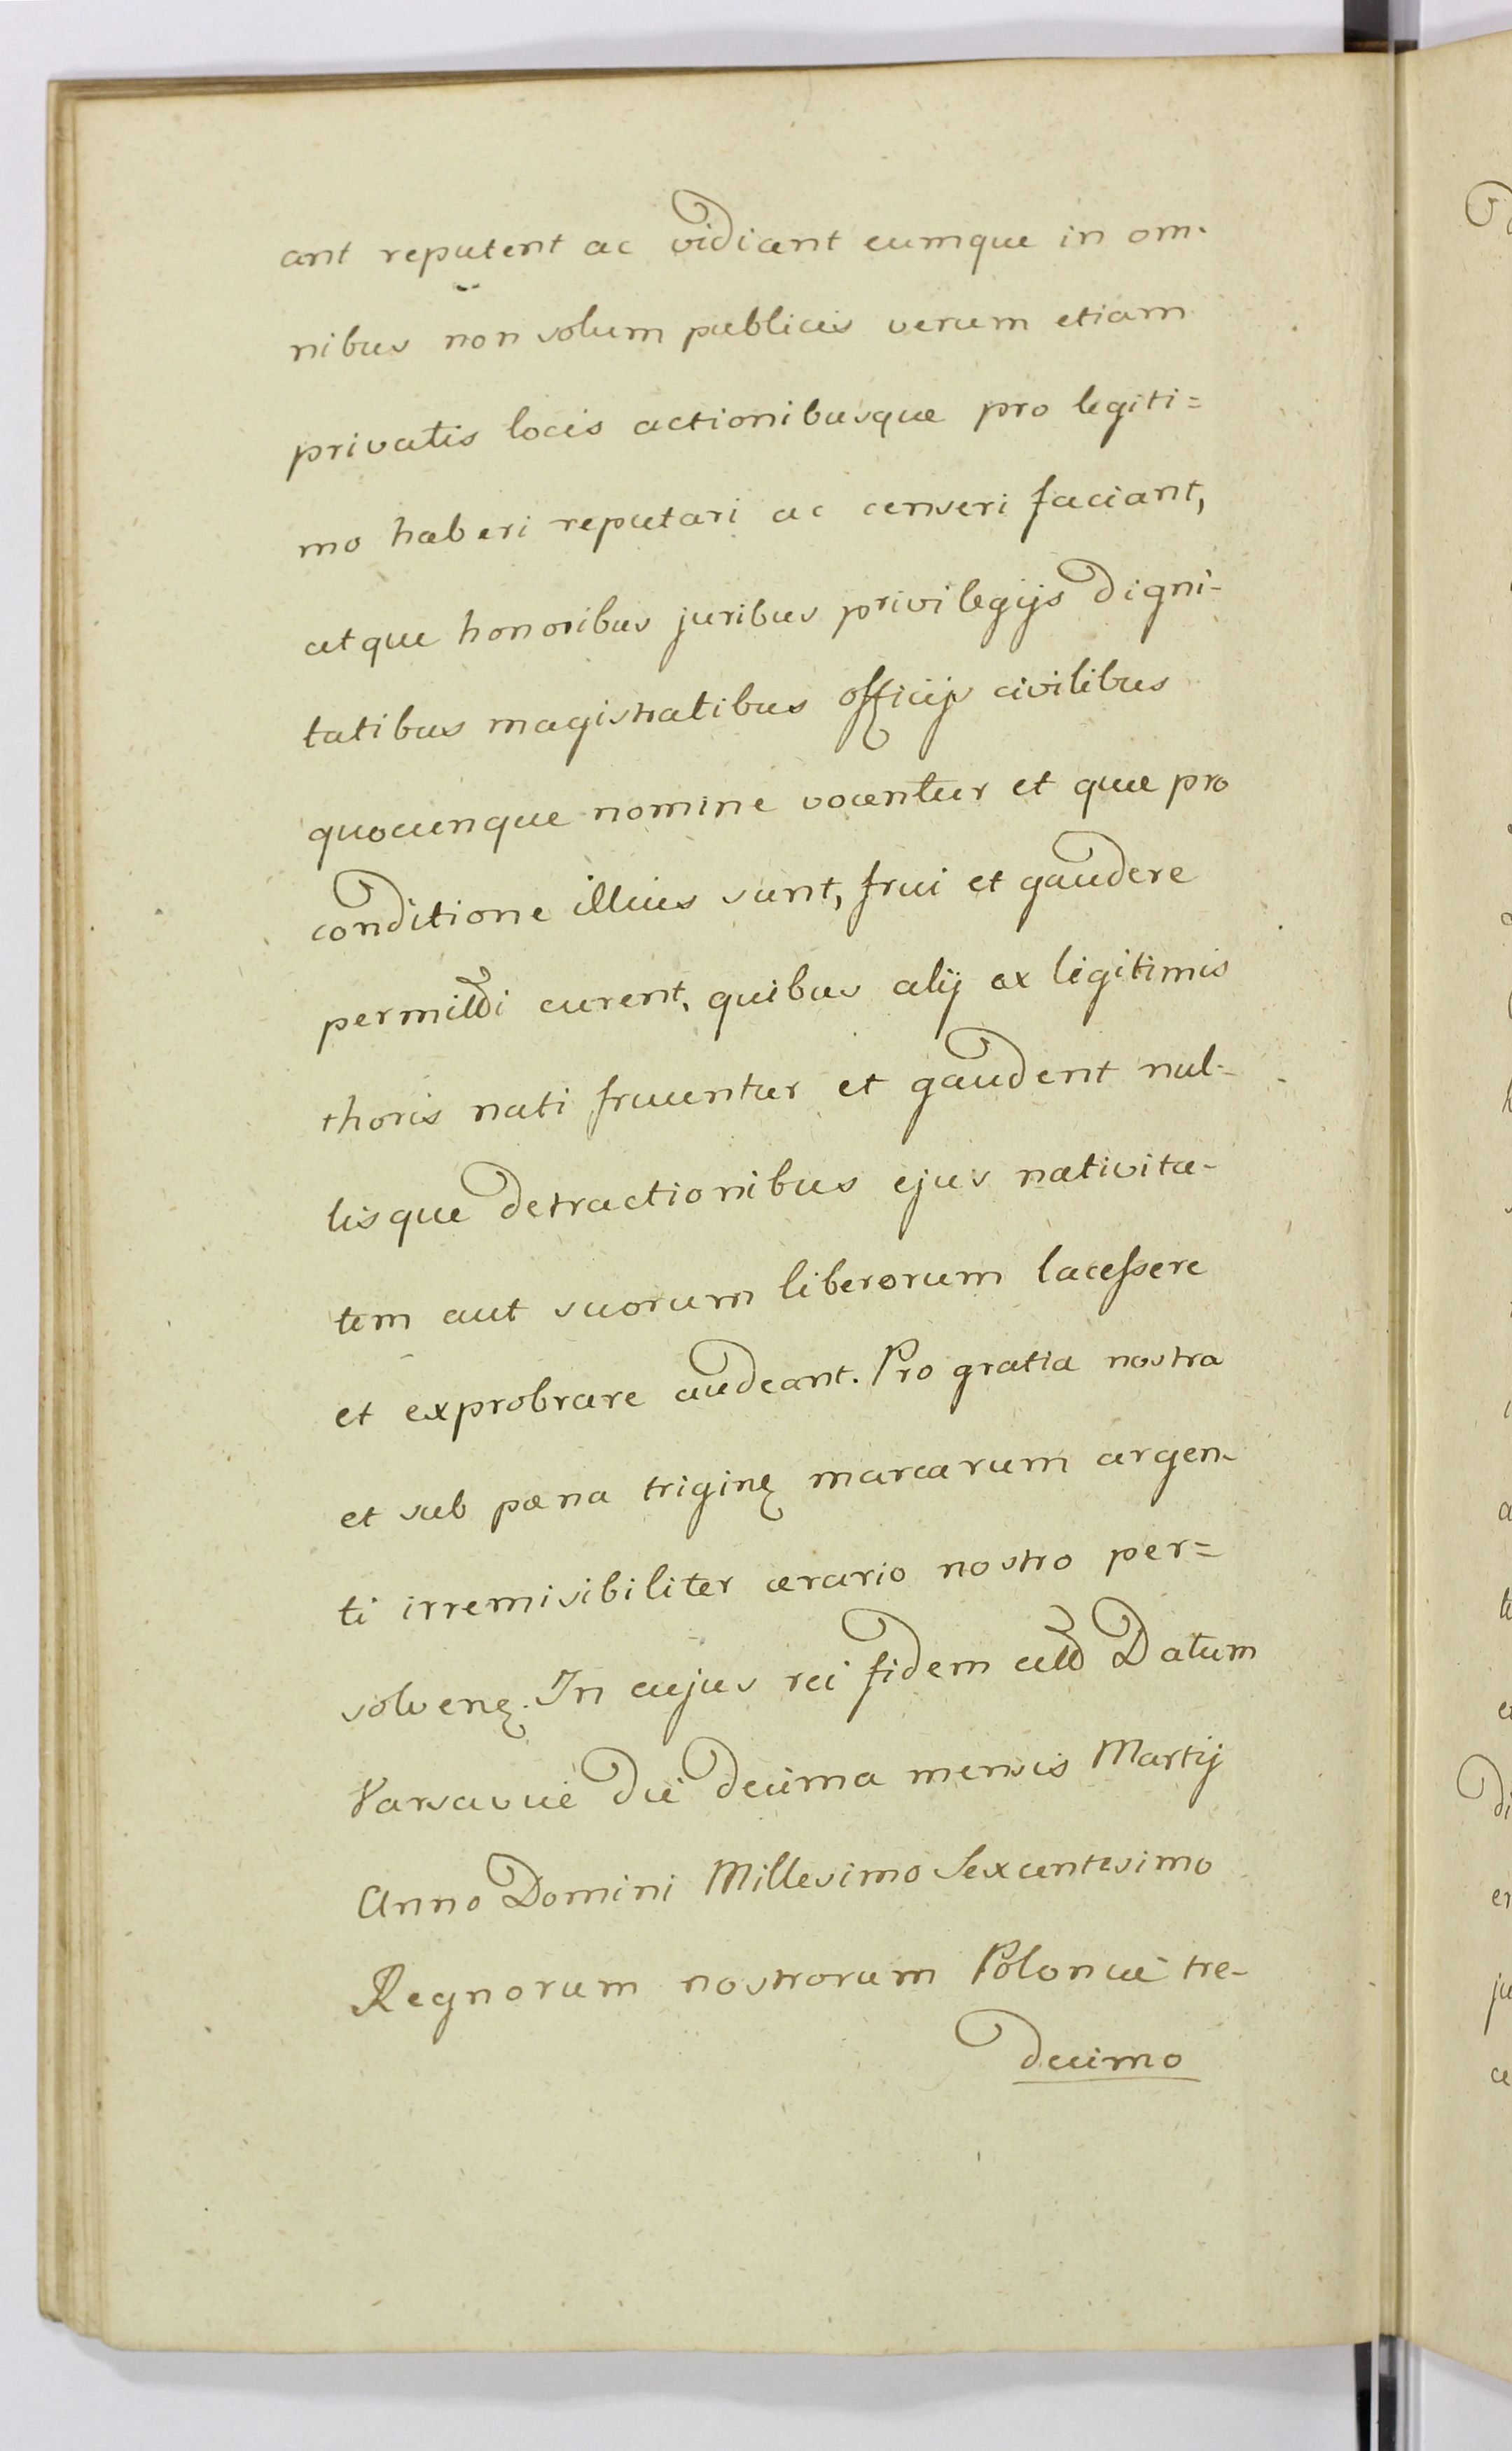 ant reputent ac vidiant eumque in om-
nibus non solum publicis verum etiam
privatis locis actionibusque pro legiti=
mo haberi reputari ac censeri faciant,
atque honoribus juribus privilegijs digni-
tatibus magistratibus officijs civilibus
quocunque nomine vocentur et quae pro
conditione illius sunt, frui et gaudere
permitti curent, quibus alij ex legitimis
thoris nati fruuntur et gaudent nul-
lisque detractionibus ejus nativita-
tem aut suorum liberorum lacessere
et exprobrare audeant. Pro gratia nostra
et sub paena trigin marcarum argen-
ti irremisibiliter aerario nostro per=
solven. In cujus rei fidem Datum
Varsaviae die decima mensis Martij
Anno Domini Millesimo Sexcentesimo
Regnorum nostrorum Poloniae tre-
decimo